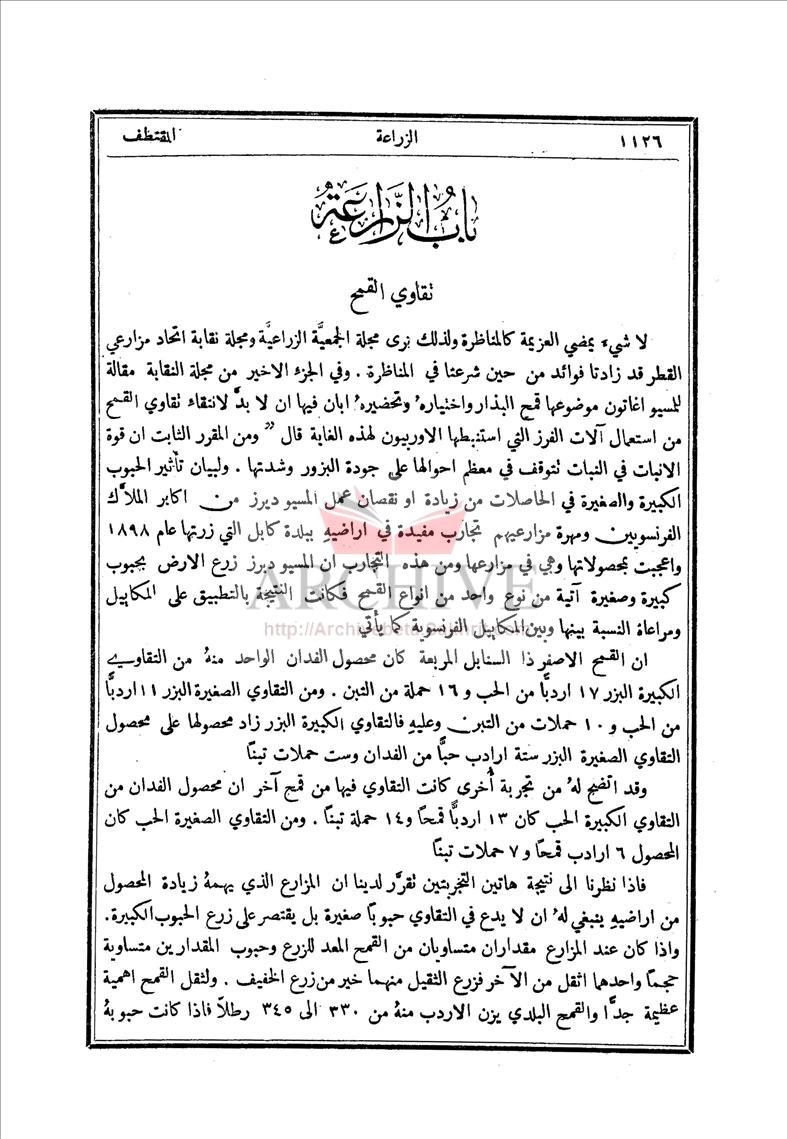 ١١٢٦ الزراعة المقتطف
باب الزراعة
تقاوي القمح
لا شيء يمضي العزيمة كالمناظرة ولذلك نرى مجلة الجمعيَّة الزراعيَّة ومجلة نقابة اتحاد مزارعي
القطر قد زادتا فوائد من حين شرعتا في المناظرة . وفي الجزء الاخير من مجلة النقابة مقالة
للمسيو اغاتون موضوعها قمح البذار واختيارهُ وتحضيرهُ ابان فيها ان لا بدَّ لانتقاء تقاوي القمح
من استعمال آلات الفرز التي استنبطها الاوربيون لهذه الغاية قال " ومن المقرر الثابت ان قوة
الانبات في النبات تتوقف في معظم احوالها على جودة البزور وشدتها . ولبيان تأثير الحبوب
الكبيرة والصغيرة في الحاصلات من زيادة او نقصان عمل المسيو ديرز من اكابر الملاَّك
الفرنسويين ومهرة مزارعيهم تجارب مفيدة في اراضيهِ ببلدة كابل التي زرتها عام ١٨٩٨
واعجبت بمحصولاتها وهي في مزارعها ومن هذه التجارب ان المسيو ديرز زرع الارض بحبوب
كبيرة وصغيرة آتية من نوع واحد من انواع القمح فكانت النتيجة بالتطبيق على المكاييل
ومراعاة النسبة بينها وبين المكاييل الفرنسوية كما يأتي
ان القمح الاصفر ذا السنابل المربعة كان محصول الفدان الواحد منهُ من التقاوي
الكبيرة البزر ١٧ اردبًّا من الحب و ١٦ حملة من التبن . ومن التقاوي الصغيرة البزر ١١ اردبًّا
من الحب و ١٠ حملات من التبن وعليهِ فالتقاوي الكبيرة البزر زاد محصولها على محصول
التقاوي الصغيرة البزر ستة ارادب حبًّا من الفدان وست حملات تبنًا
وقد اتضح لهُ من تجربة أُخرى كانت التقاوي فيها من قمح آخر ان محصول الفدان من
التقاوي الكبيرة الحب كان ١٣ اردبًّا قمحًا و ١٤ حملة تبنًا . ومن التقاوي الصغيرة الحب كان
المحصول ٦ ارادب قمحًا و ٧ حملات تبنًا
فاذا نظرنا الى نتيجة هاتين التجربتين تقرَّر لدينا ان المزارع الذي يهمهُ زيادة المحصول
من اراضيهِ ينبغي لهُ ان لا يدع في التقاوي حبوبًا صغيرة بل يقتصر على زرع الحبوب الكبيرة .
واذا كان عند المزارع مقداران متساويان من القمح المعد للزرع وحبوب المقدارين متساوية
حجمًا واحدهما اثقل من الآخر فزرع الثقيل منهما خير من زرع الخفيف . ولثقل القمح اهمية
عظيمة جدًّا والقمح البلدي يزن الاردب منهُ من ٣٣٠ الى ٣٤٥ رطلاً فاذا كانت حبوبهُ
ARCHIVE